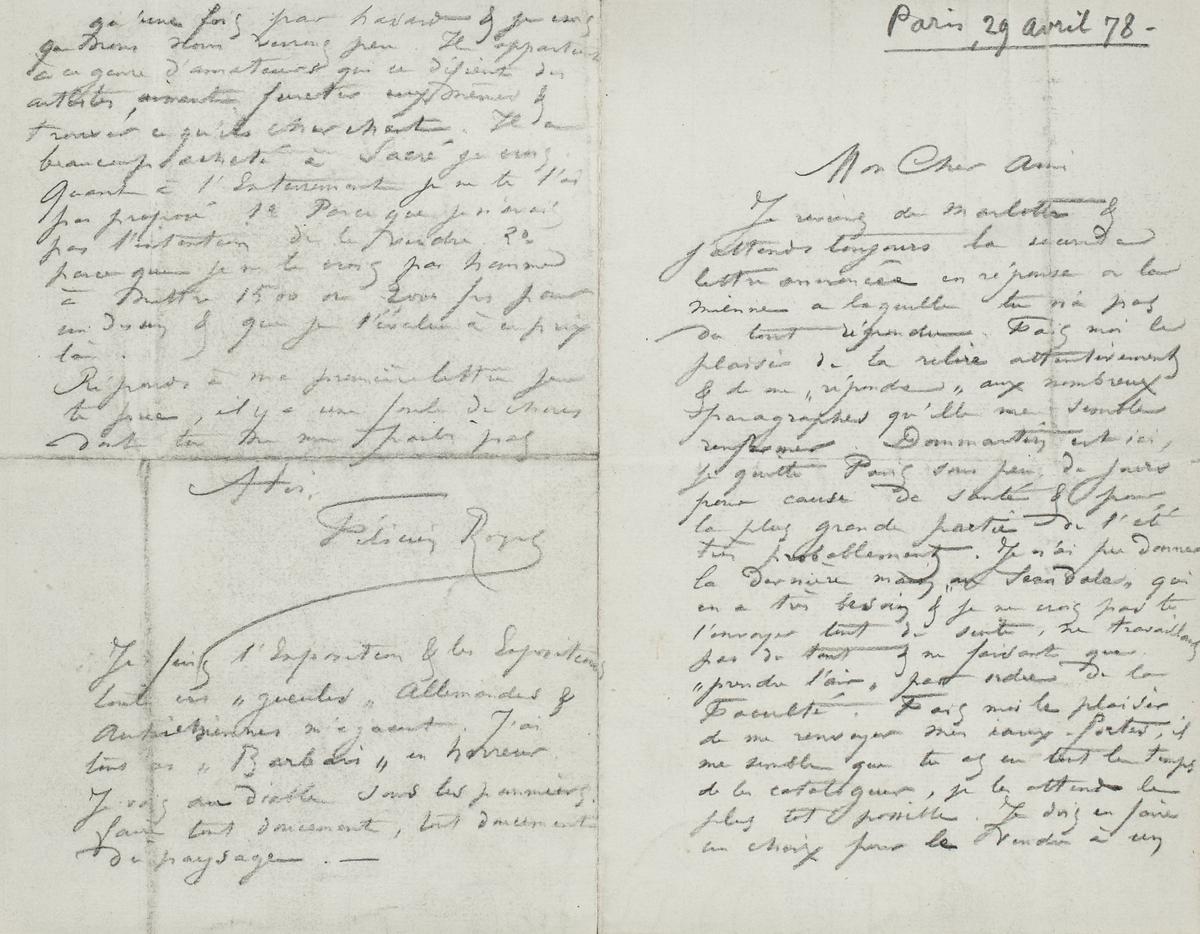 Paris, 29 avril 78 -
Mon Cher ami
Je reviens de Marlotte &
j'attends toujours la seconde
lettre annoncée en réponse a la
mienne a laquelle tu n'a pas
du tout répondu. Fais moi le
plaisir de la relire attentivement
& de me „répondre„ aux nombreux
paragraphes qu'elle me semble
renfermer. Dommartin est ici,
je quitte Paris sous peu de jours
pour cause de santé & pour
la plus grande partie de l'été
très probablement. Je n'ai pu donner
la dernière main „au Scandale„ qui
en a très besoin & je ne crois pas te
l'envoyer tout de suite, ne travaillant
pas du tout & ne faisant que
„prendre l'air„ par ordre de la
Faculté. Fais moi le plaisir
de me renvoyer mes eaux-fortes, il
me semble que tu as eu tout le temps
de les cataloguer, je les attends le
plus tot possible. Je dois en faire
un choix pour le vendre à un
qu'une fois par hasard & je crois
que nous nous verrons peu. Il appartient
à ce genre d'amateurs qui se défient des
artistes, aiment fureter eux mêmes &
trouver ce qu'ils cherchent. Il a
beaucoup acheté à Sacré je crois.
Quant à l'Enterrement je ne te l'ai
pas proposé 1º Parce que je n'avais
pas l'intention de le vendre 2º
parceque je ne te crois pas homme
à mettre 1500 ou 2000 frs pour
un dessin & que je l'évalue à ce prix
là.
Réponds à ma première lettre je
te prie, il y a une foule de choses
dont tu ne me parles pas
A toi.
Félicien Rops
Je fuis l'Exposition & les Expositions
tout ces „gueules„ Allemandes &
Autrichiennes m'agacent. J'ai
tous ces „Barbares„ en horreur
Je vais au diable sous les pommiers
faire tout doucement, tout doucement
du paysage. —